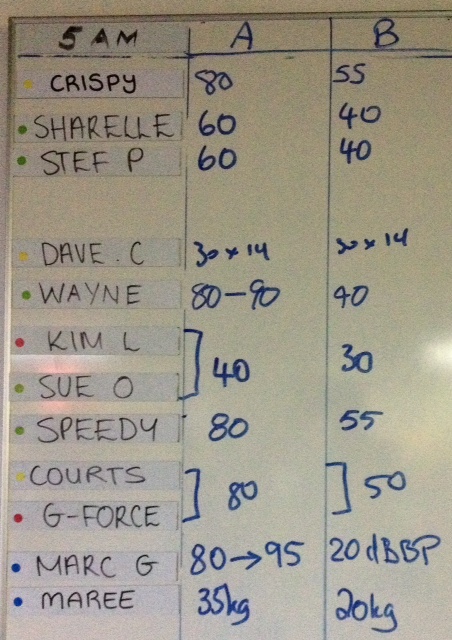 5 AM A B
CRISPY 80 55
SHARELLE 60 40
STEF P 60 40
DAVE . C 30 x 14 30 x 14
WAYNE 80 - 90 40
KIM L
40 30
SUE O
SPEEDY 80 55
COURTS
] 80 ] 50
G-FORCE
MARC G 80 → 95 20 dBBP
MAREE 35kg 20kg